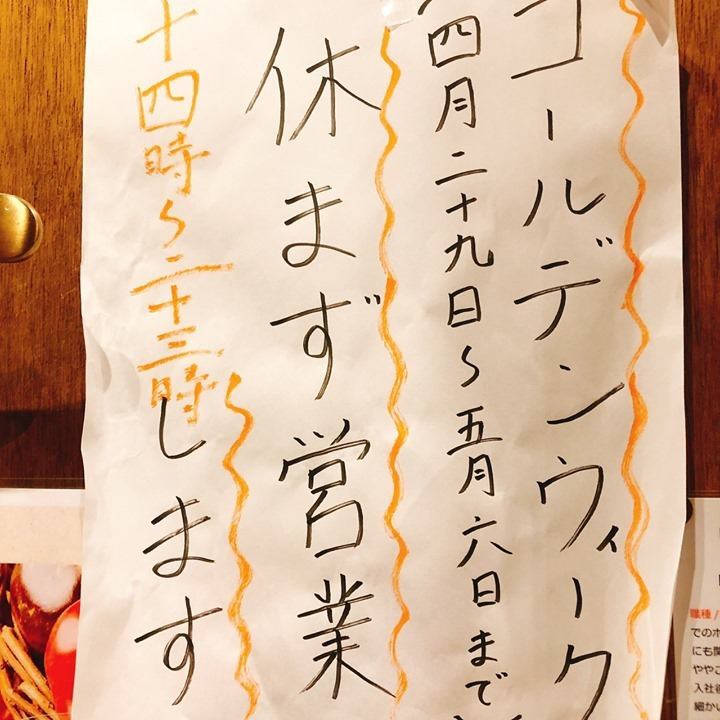 ゴールデンウィーク
四月二十九日〜五月六日まで
休まず営業
します
十四時〜二十三時
職種/
でのホ
にも関
ややこ
入社後
細かい